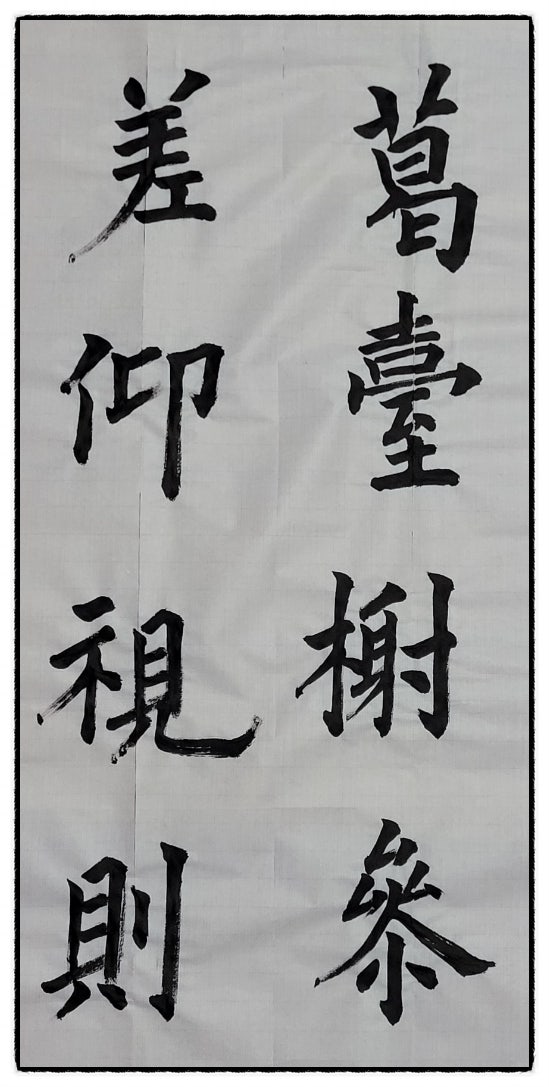 葛臺榭參
差仰視則